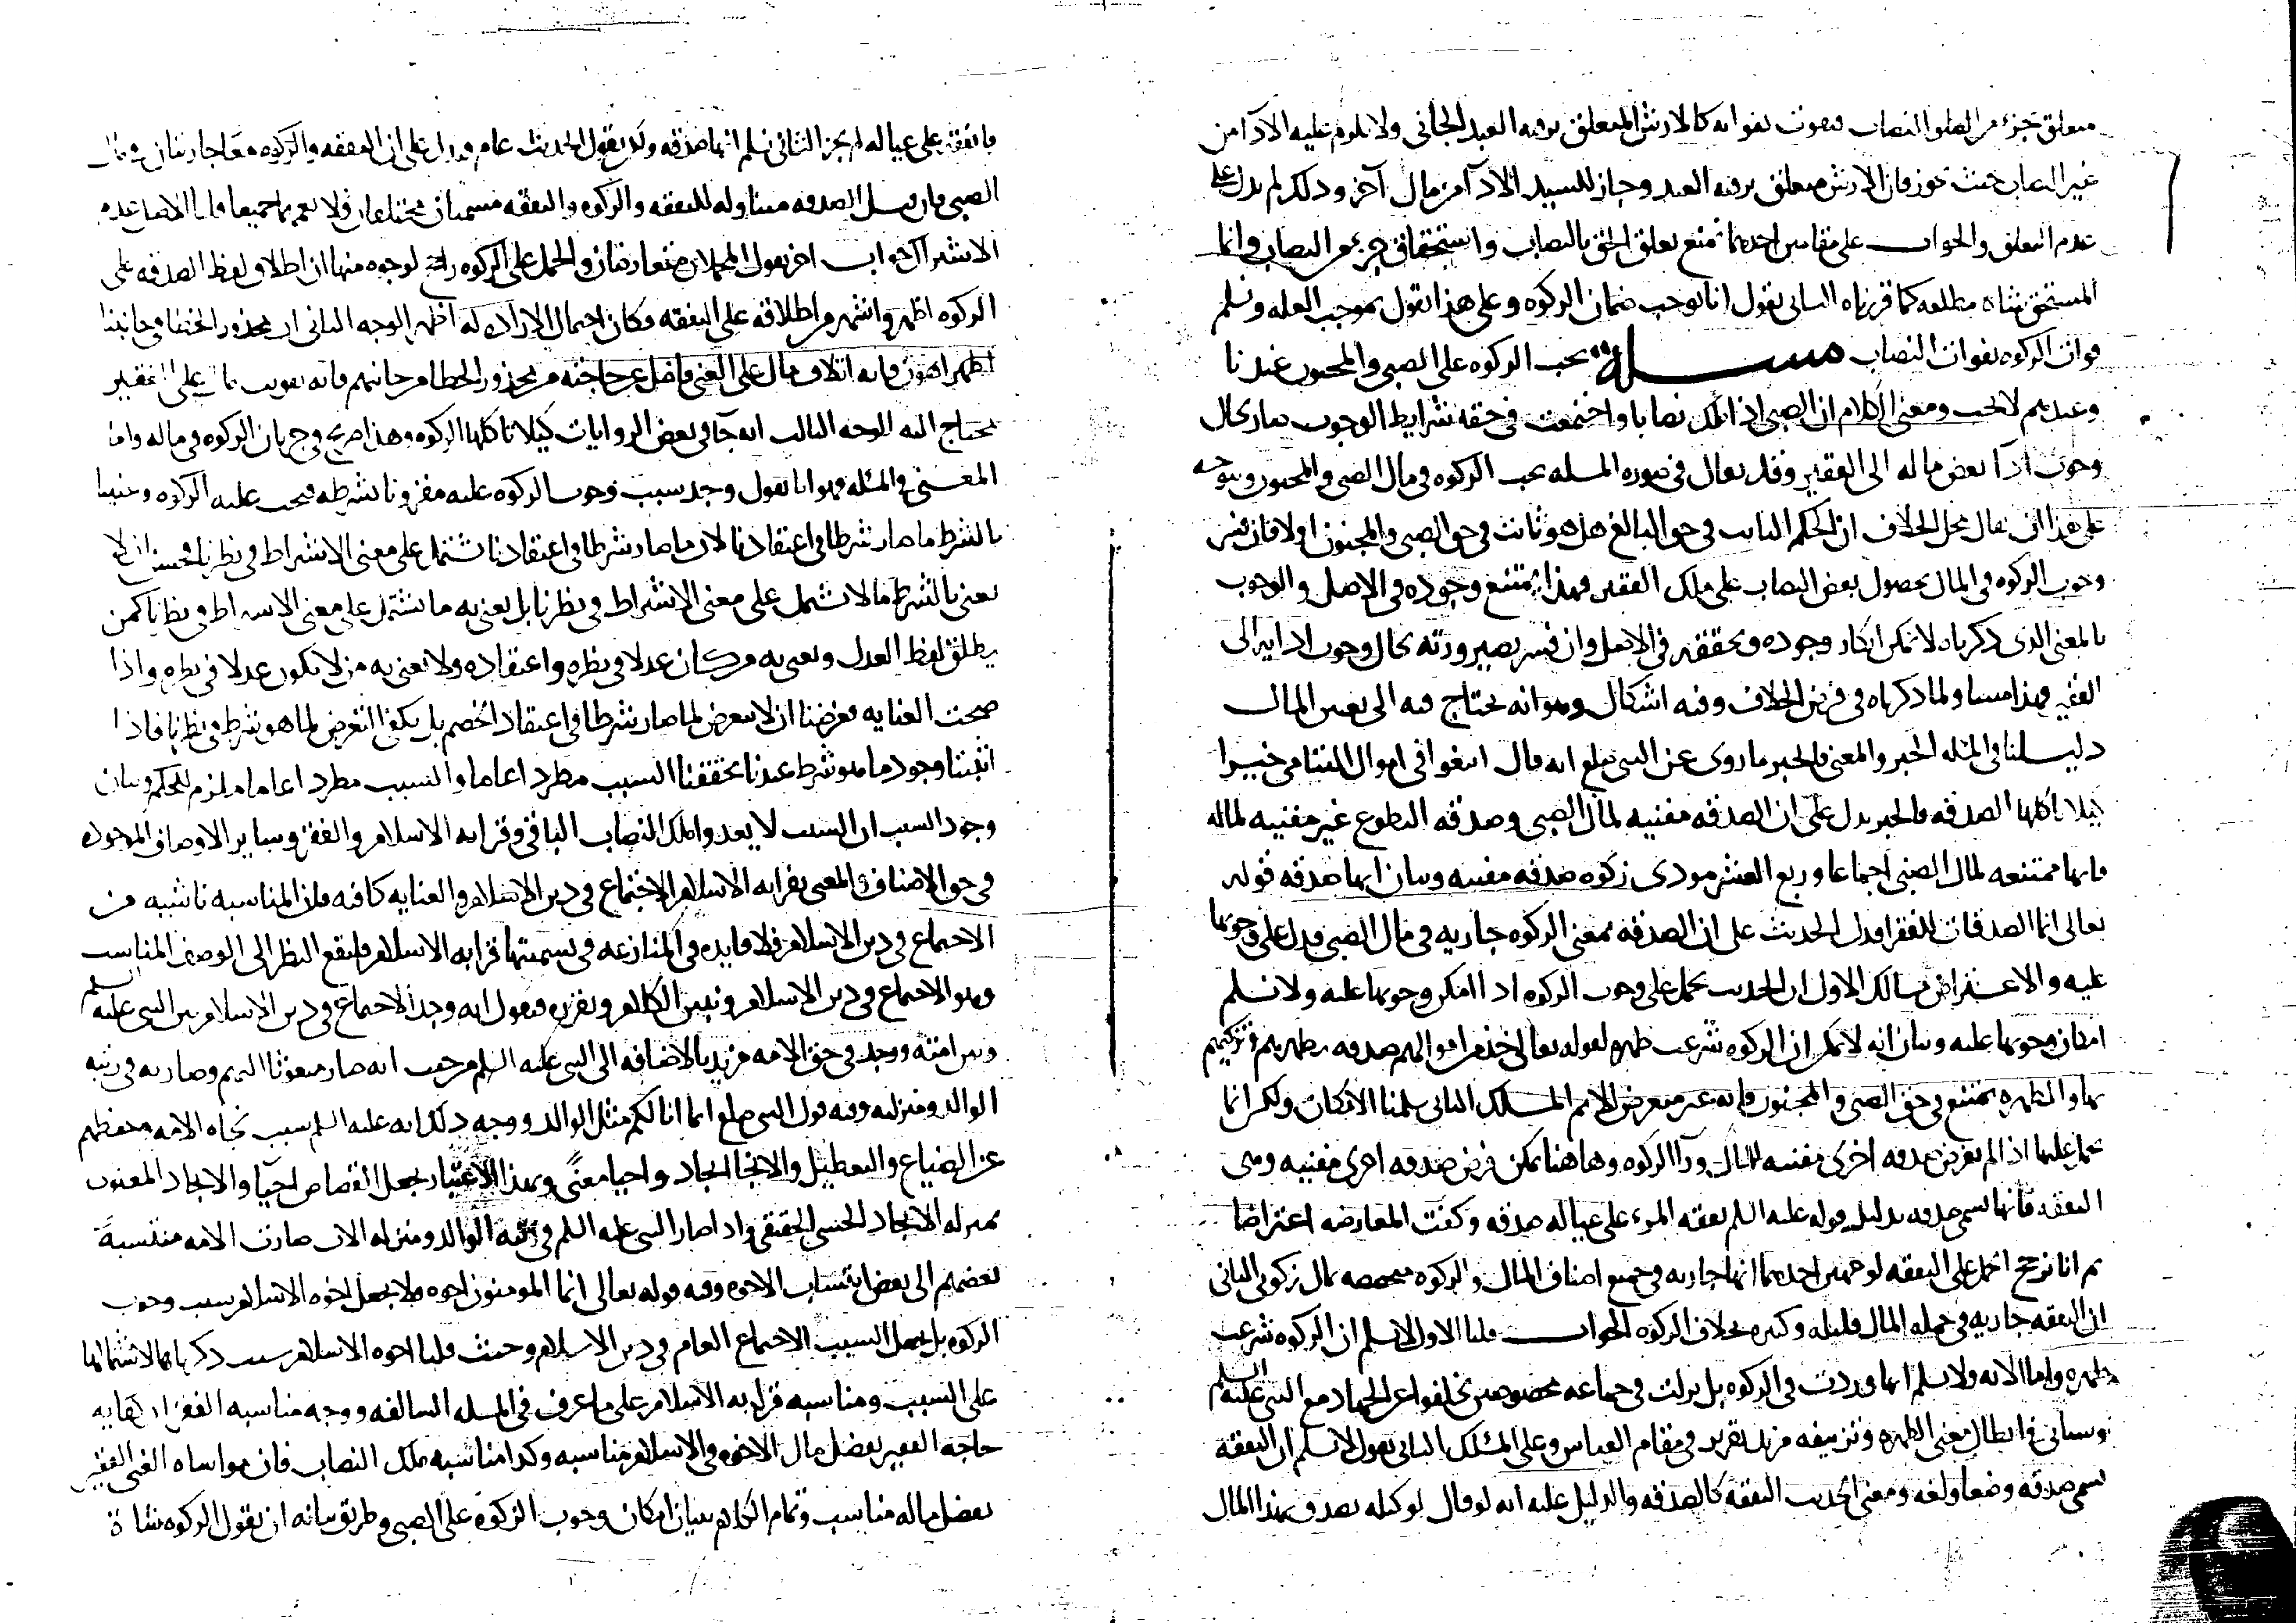 متعلق بجزء من النصاب فيفوت بفواته كالارش المتعلق برقبة العبد الجاني ولا يلزم عليه الاداء من
غير النصاب حيث يجوز فان الارش متعلق برقبة العبد وجاز للسيد الاداء من مال آخر وذلك لم يدل على
عدم التعلق والجواب على مقامين احدهما نمنع تعلق الحق بالنصاب واستحقاق جزء من النصاب وانما
المستحق شاة مطلقة كما قررناه الثاني نقول انا نوجب ضمان الزكوة وعلى هذا نقول بموجب العلة ونسلم
فوات الزكوة بفوات النصاب مسألة تجب الزكوة على الصبي والمجنون عندنا
وعندهم لا تجب ومعنى الكلام ان الصبي اذا ملك نصابا واجتمعت في حقه شرايط الوجوب صار بحال
وجوب اداء بعض ماله الى الفقير وقد يقال في صورة المسلة تجب الزكوة في مال الصبي والمجنون ويتوجه
على هذا ان يقال محل الخلاف ان الحكم الثابت في حق البالغ هل هو ثابت في حق الصبي والمجنون اولا فان فسر
وجوب الزكوة في المال بحصول بعض النصاب على ملك الفقير فهذا يمتنع وجوده في الاصل والوجوب
بالمعنى الذي ذكرناه لا يمكن انكار وجوده وتحققه في الاصل وان فسر بصيرورته بحال وجوب ادايه الى
الفقير فهذا مساو لما ذكرناه في فرض الخلاف وفيه اشكال وهو انه يحتاج فيه الى تعيين المال
دليلنا في المثله الخبر والمعنى فالخبر ما روى عن النبي صلع انه قال ابتغوا في اموال اليتامى خيرا
كيلا تاكلها الصدقه فالخبر يدل على ان الصدقه مفنيه لمال الصبي وصدقه التطوع غير مفنيه لماله
فانها ممتنعه لمال الصبي اجماعا وربع العشر مودى زكوه صدقه مفنيه وبيان انها صدقه قوله
تعالى انما الصدقات للفقرا فدل الحديث على ان الصدقه بمعنى الزكوه جاريه في مال الصبي فيدل على وجوبها
عليه والاعتراض مسالك الاول ان الحديث يحمل على وجوب الزكوه اذا امكن وجوبها عليه ولا نسلم
امكان وجوبها عليه وبيان انه لا يمكن ان الزكوه شرعت طهره لقوله تعالى خذ من اموالهم صدقه تطهرهم وتزكيهم
بها والطهره يمتنع في حق الصبي والمجنون فانه غير متعرض للاثم المسلك الثاني سلمنا الامكان ولكن انما
يحمل عليها اذا لم يفرض صدقه اخرى مفنيه للمال ورآ الزكوه وها هنا يمكن فرض صدقه اخرى مفنيه وهي
النفقه فانها تسمى صدقه بدليل قوله عليه السلم نفقه المرء على عياله صدقه وكفت المعارضه اعتراضا
ثم انا نرجح الحمل على النفقه لوجهين احدهما انها جاريه في جميع اصناف المال والزكوه مخصصه بمال زكوى الثاني
ان النفقه جاريه في جمله المال قليله وكثيره بخلاف الزكوه الجواب قلنا الاول لا نسلم ان الزكوه شرعت
طهره واما الايه ولا نسلم انها وردت في الزكوه بل نزلت في جماعه مخصوصين تخلفوا عن الجهاد مع النبي عليه السلم
وسياتي في ابطال معنى الطهره وتزييفه مزيد تقرير في مقام القياس وعلى المسلك الثاني نقول لا نسلم ان النفقه
تسمى صدقه وضعا ولغه ومعنى الحديث النفقه كالصدقه والدليل عليه انه لو قال لوكيله تصدق بهذا المال
فانفقه على عياله لم يجز الثاني نسلم انها صدقه ولكن نقول الحديث عام فيدل على ان النفقه والزكوه معا جاريتان في مال
الصبي فان قيل الصدقه متناوله للنفقه والزكوه والنفقه مسميان مختلفان فلا يعمهما جميعا
الاشتراك جواب اخر نقول المحملان متعارضان والحمل على الزكوه راجح لوجوه منها ان اطلاق لفظ الصدقه على
الزكوه اظهر واشهر من اطلاقه على النفقه فكان احتمال الاراده له اظهر الوجه الثاني ان محذور الخطا في جانبنا
اظهر اهون فانه اتلاف مال على الغنى فاضل عن حاجته من محذور الخطا من جانبهم فانه تفويت مال على الفقير
يحتاج اليه الوجه الثالث انه جا في بعض الروايات كيلا تاكلها الزكوه وهذا صريح في جريان الزكوه في ماله واما
المعنى في المثله فهو انا نقول وجد سبب وجوب الزكوه عليه مقرونا بشرطه فتجب عليه الزكوه وعنينا
بالشرط ما صار شرطا في اعتقادنا لان ما صار شرطا في اعتقادنا يشتمل على معنى الاشتراط في نظرنا فحسن ان لا
نعني بالشرط ما لا يشتمل على معنى الاشتراط في نظرنا بل نعني به ما يشتمل على معنى الاشتراط في نظرنا كمن
يطلق لفظ العدل ويعنى به من كان عدلا في نظره واعتقاده ولا يعنى به من لا يكون عدلا في نظره واذا
صحت العنايه تعرضنا ان لا نتعرض لما صار شرطا في اعتقاد الخصم بل يكفى التعرض لما هو شرط في نظرنا فاذا
اثبتنا وجود ما هو شرط عندنا تحققنا السبب مطردا عاما والسبب مطردا عاما ملزم للحكم وبيان
وجود السبب ان السبب لا يعدوا ملك النصاب الباقي وقرابه الاسلام والفقر وساير الاوصاف الموجوده
في حق الاصناف والمعنى بقرابه الاسلام الاجتماع في دين الاسلام والعنايه كافيه فان المناسبه ناشيه من
الاجتماع في دين الاسلام فلا فايده في المنازعه في تسميتها قرابه الاسلام فليقع النظر الى الوصف المناسب
وهو الاجتماع في دين الاسلام ونبين الكلام ونقرره فنقول انه وجد الاجتماع في دين الاسلام بين النبي عليه السلم
وبين امته ووجد في حق الامه مزيد بالاضافه الى النبي عليه السلم من حيث انه صار مبعوثا اليهم وصار به في رتبه
الوالد ومنزلته وفيه قول النبي صلع انما انا لكم مثل الوالد ووجه ذلك انه عليه السلم سبب نجاه الامه وحفظهم
عن الضياع والتعطيل والانجا ايجاد واحيا معنًى وبهذا الاعتبار يجعل القصاص احيآ والايجاد المعنوى
بمنزله الايجاد الحسى الحقيقى واذا صار النبي عليه السلم في رتبه الوالد ومنزله الاب صارت الامه منتسبةً
بعضهم الى بعض بانتساب الاخوه وفيه قوله تعالى انما المومنون اخوه ولا نجعل اخوه الاسلام سبب وجوب
الزكوه بل نجعل السبب الاجتماع العام في دين الاسلام وحيث قلنا اخوه الاسلام سبب ذكرناها لاشتمالها
على السبب ومناسبه قرابه الاسلام على ما عرف في المسله السالفه ووجه مناسبه الفقر ان كفايه
حاجه الفقير بفضل مال الاخوه في الاسلام مناسبه وكذا مناسبه ملك النصاب فان مواساه الغنى الفقير
بفضل ماله مناسب وتمام الكلام ببيان امكان وجوب الزكوة على الصبي وطريق بيانه ان نقول الزكوه شاة